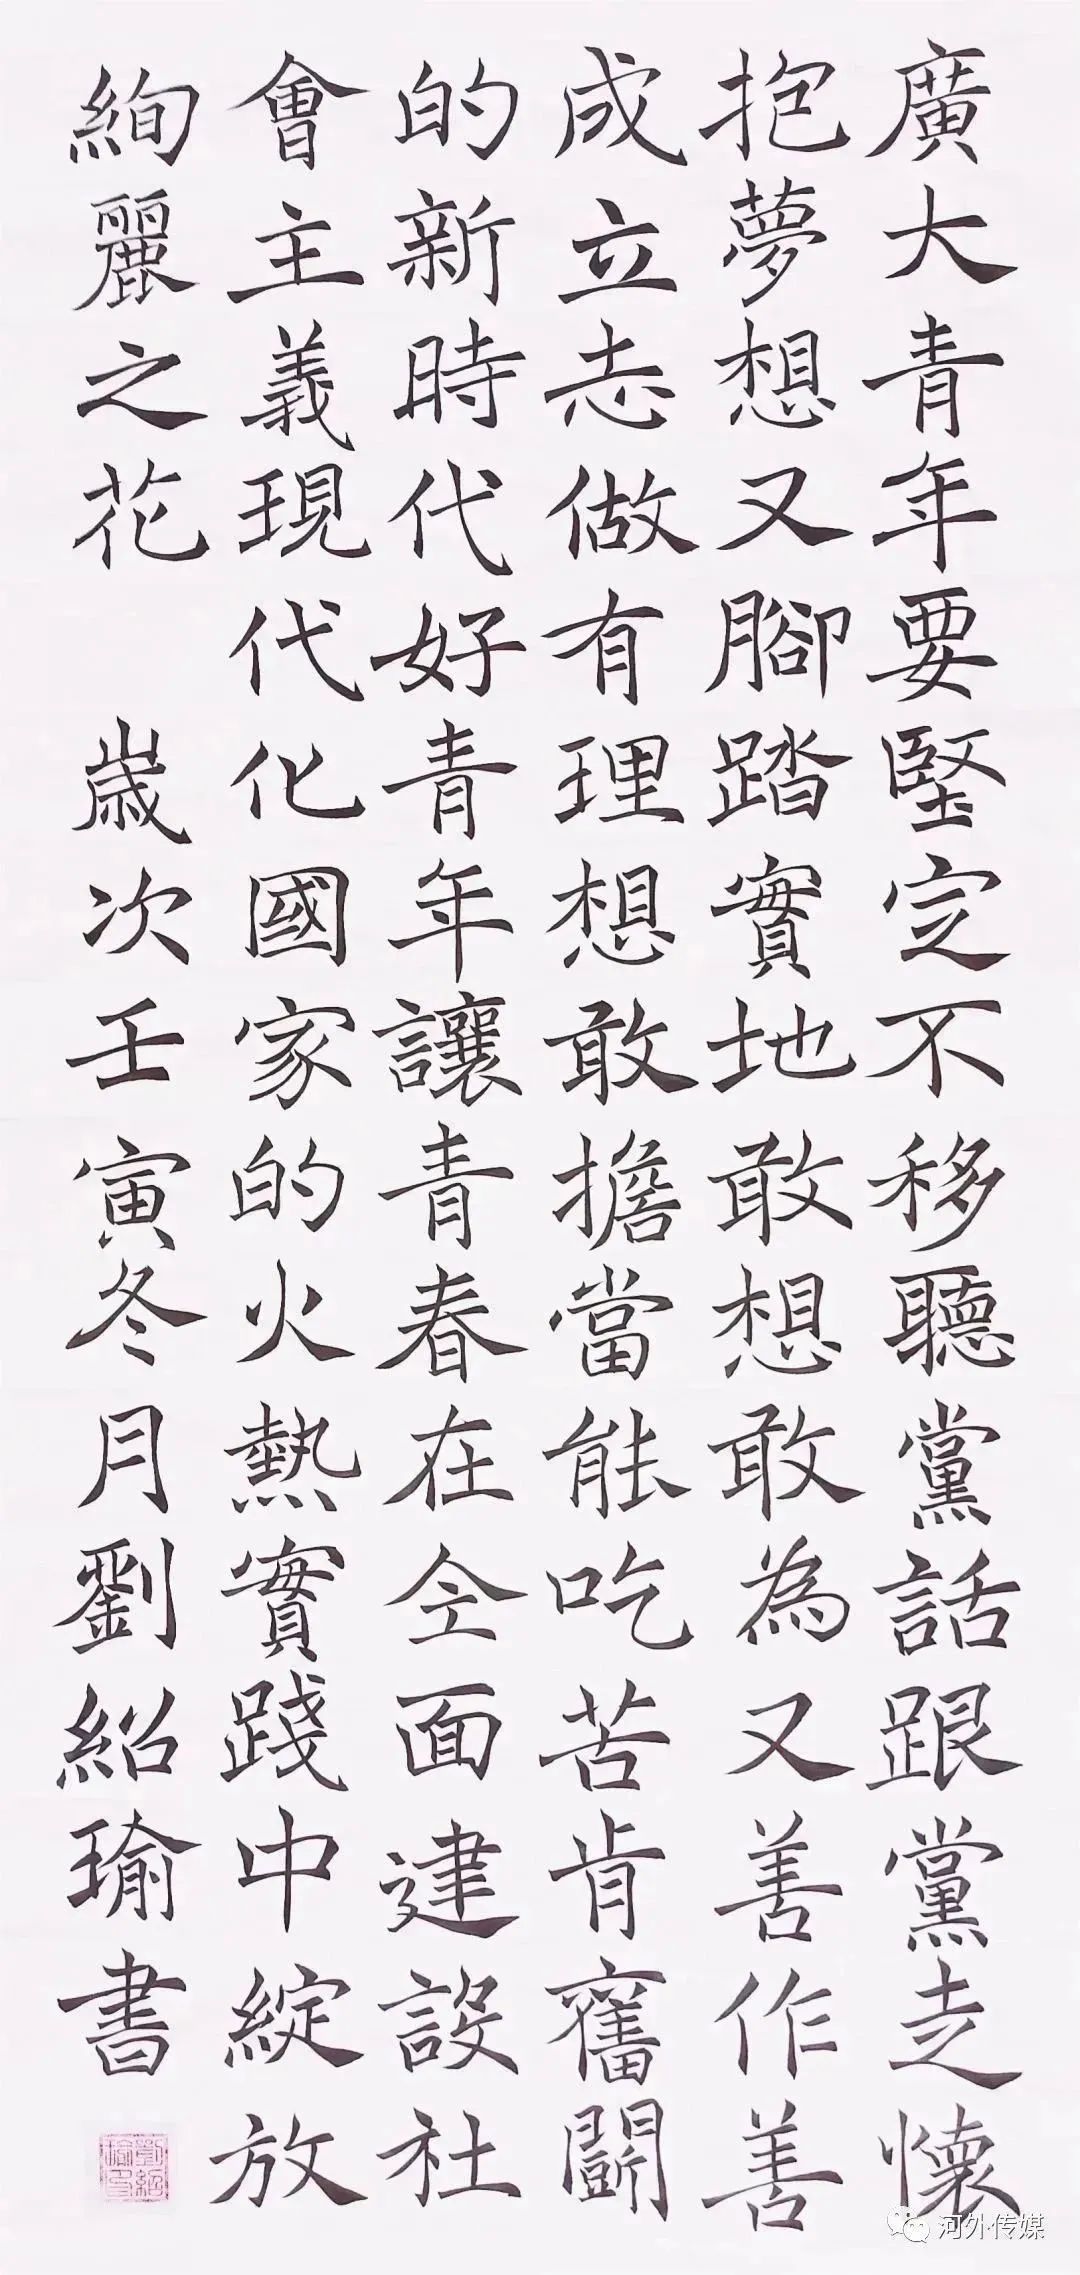 廣大青年要堅定不移聽黨話跟黨走懷
抱夢想又腳踏實地敢想敢為又善作善
成立志做有理想敢擔當能吃苦肯奮鬭
的新時代好青年讓青春在全面建設社
會主義現代化國家的火熱實踐中綻放
絢麗之花 歲次壬寅冬月劉紹瑜書
劉紹瑜印
河外传媒